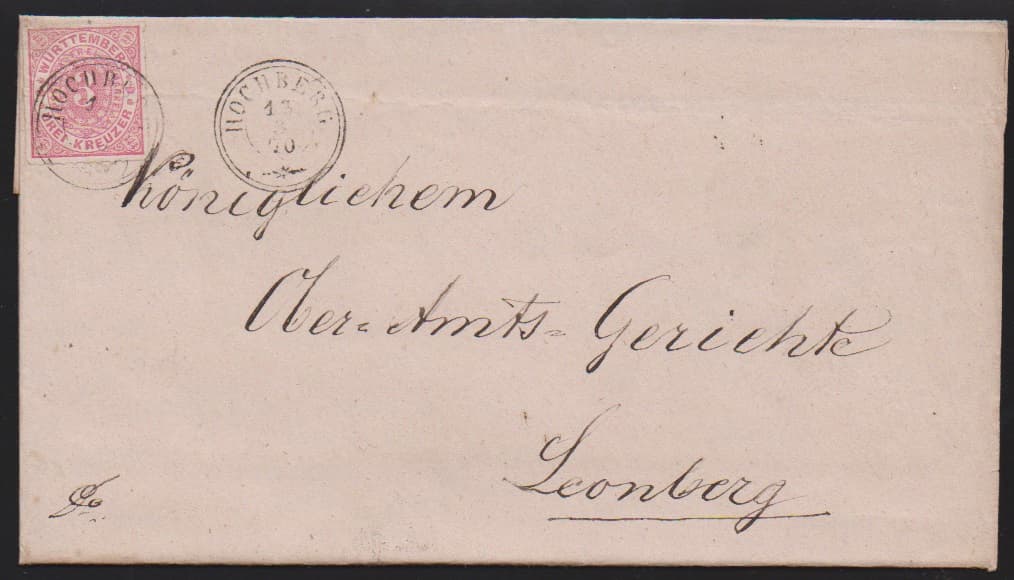 WÜRTTEMBERG
3
DREI KREUZER
HOCHB
1
HOCHBERG
13
3
70
Königlichem
Ober=Amts=Gerichte
Leonberg